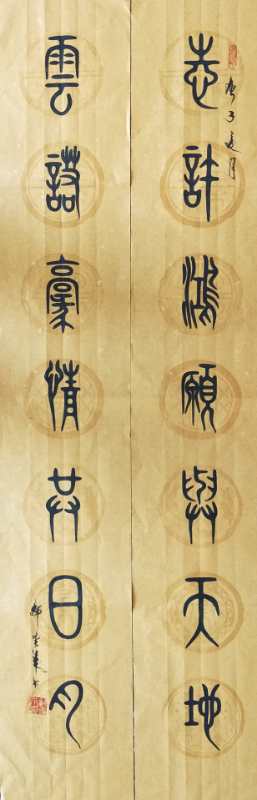 庚子夏月
志許鴻願與天地
雲諾豪情共日月